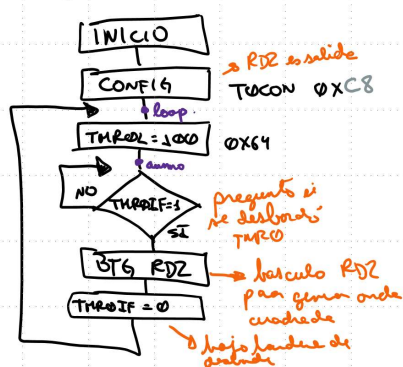 INICIO
→ RD2 es salida
CONFIG
T0CON 0XC8
loop
TMR0L=100
0X64
aumo
NO
TMR0IF=1
pregunto si
se desbordó
TMR0
SI
BTG RD2
→ basculo RD2
para generar onda
cuadrada
TMR0IF = 0
→ bajo bandera de
desborde